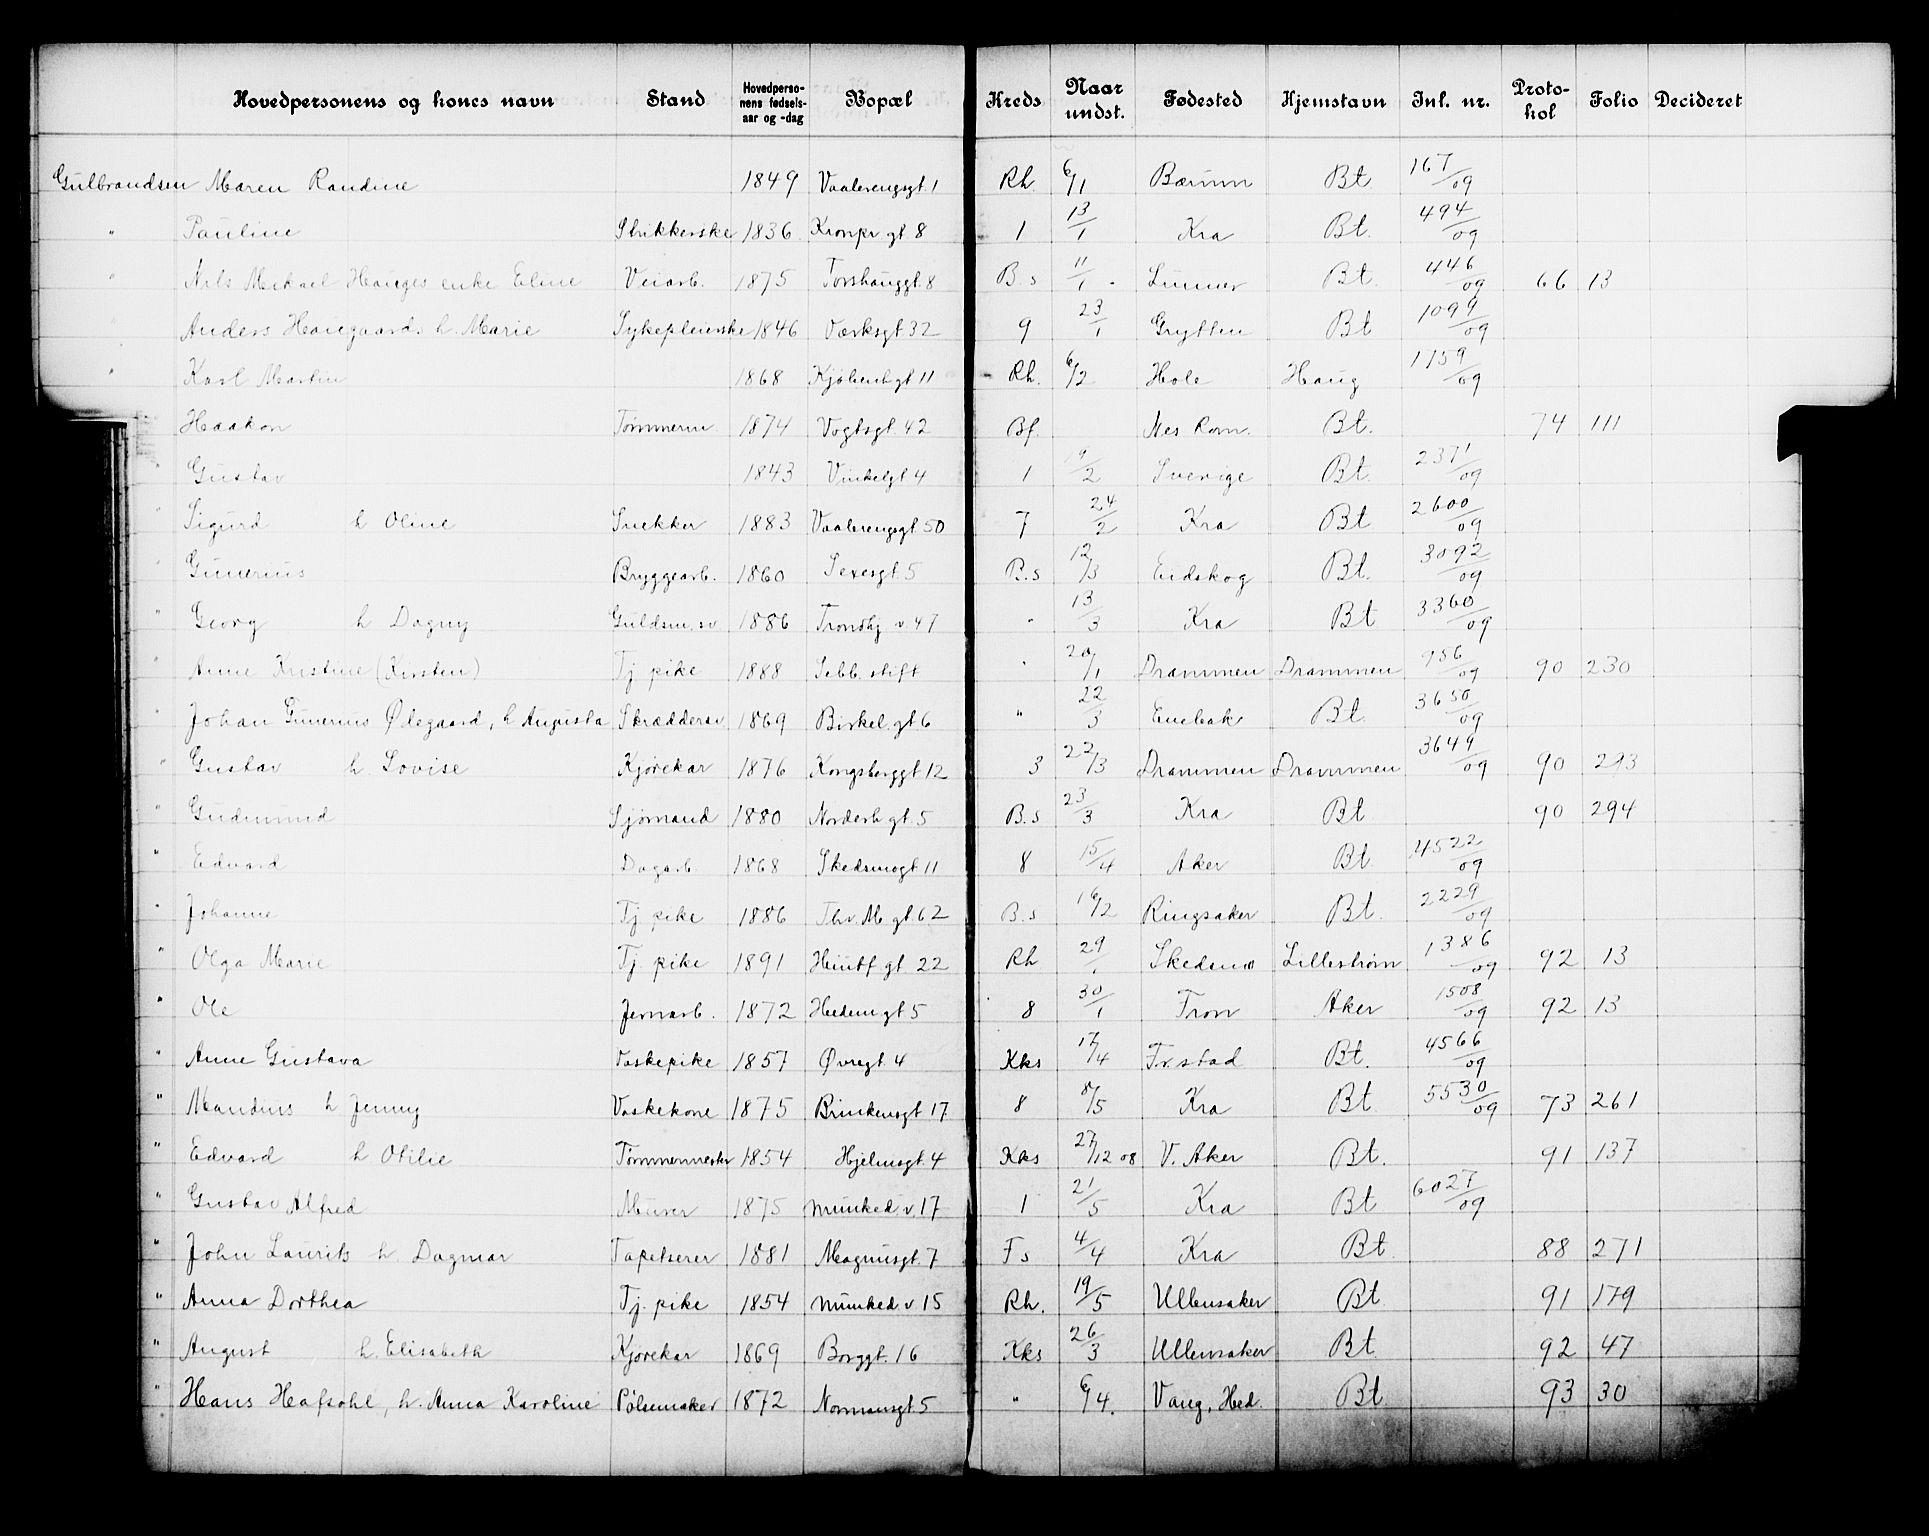 Hovedpersonens og kones navn Stand Hovedperso-nens fødsels-aar og -dag Bopæl Kreds Naar undst. Fødested Hjemstavn Inl. nr. Proto-kol Folio Decideret
Gulbrandsen Maren Randine 1849 Vaalerengsgt. 1 Rh. 6/1 Bærum Bt. 167/09
" Pauline Strikkerske 1836. Kronpr gt 8 1 13/1 Kra Bt. 494/09
" Nils Mikael Hauges enke Eline Veiarb. 1875 Torshauggt. 8 B.s 11/1 Lunner Bt. 446/09 66 13
" Anders Haugaards h. Marie Sykepleierske 1846 Værksgt. 32 9 23/1 Grytten Bt 1099/09
" Karl Martin 1868 Kjølberggt 11 Rh. 6/2 Hole Haug 1759/09
Haakon Tømmerm. 1874 Vogtsgt. 42 Bf. Nes Rom. Bt. 74 111
" Gustav 1843 Vinkelgt 4 1 19/2 Sverige Bt. 2371/09
" Sigurd h Oline Snekker 1883 Vaalerengsgt 50 7 24/2 Kra Bt 2600/09
" Gunerius Bryggearb. 1860 Sexesgt. 5 B.s 12/3 Eidskog Bt. 3092/09
" Georg h Dagny Guldsm.sv 1886 Trondhj v. 47 " 13/3 Kra Bt 3360/09
" Anne Kristine (Kirsten) Tj pike 1888 Sebb. stift " 20/1 Drammen Drammen 956/09 90 230
" Johan Gunerius Ødegaard, h Augusta Skræddersv. 1869 Birkel. gt 6 " 22/3 Enebak Bt. 3650/09
" Gustav h. Lovise Kjørekar 1876 Kongsberggt. 12 3 22/3 Drammen Drammen 3649/09 90 293
" Gudmund Sjømand 1880 Norderh gt. 5 B.s 23/3 Kra Bt 90 294
" Edvard Dagarb 1868 Skedsmogt 11 8 15/4 Aker Bt. 4522/09
" Johanne Tj pike 1886 Thv. M. gt 62 B.s 16/2 Ringsaker Bt. 2229/09
" Olga Marie Tj pike 1891 Heutf gt 22 Rh 29/1 Skedsmo Lillestrøm 1386/09 92 13
" Ole Jernarb. 1872 Hedem gt 5 8 30/1 Tron Aker 1508/09 92 13
" Anne Gustava Vaskepike 1857 Øvregt. 4 Kks 17/4 Fr.stad Bt. 4566/09
" Mandius h Jenny Vaskekone 1875 Brinkensgt. 17 8 8/5 Kra Bt 5530/09 73 261
" Edvard h Otilie Tømmermester 1854 Hjelmsgt. 4 Kks 27/12 08 V. Aker Bt. 91 137
" Gustav Alfred Murer 1875 Munked. v. 17 1 21/5 Kra Bt 6027/09
" John Laurits h. Dagmar Tapetserer 1881 Magnusgt. 7 Fs 4/4 Kra Bt 88 271
" Anna Dorthea Tj. pike 1854 Munked v. 15 Rh. 19/5 Ullensaker Bt 91 179
" August h. Elisabeth Kjørekar 1869 Borggt. 16 Kks 26/3 Ullensaker Bt 92 47
" Hans Hafsohl, h. Anna Karoline Pølsemaker 1872 Normansgt. 5 " 6/4. Vang, Hed. Bt. 93 30